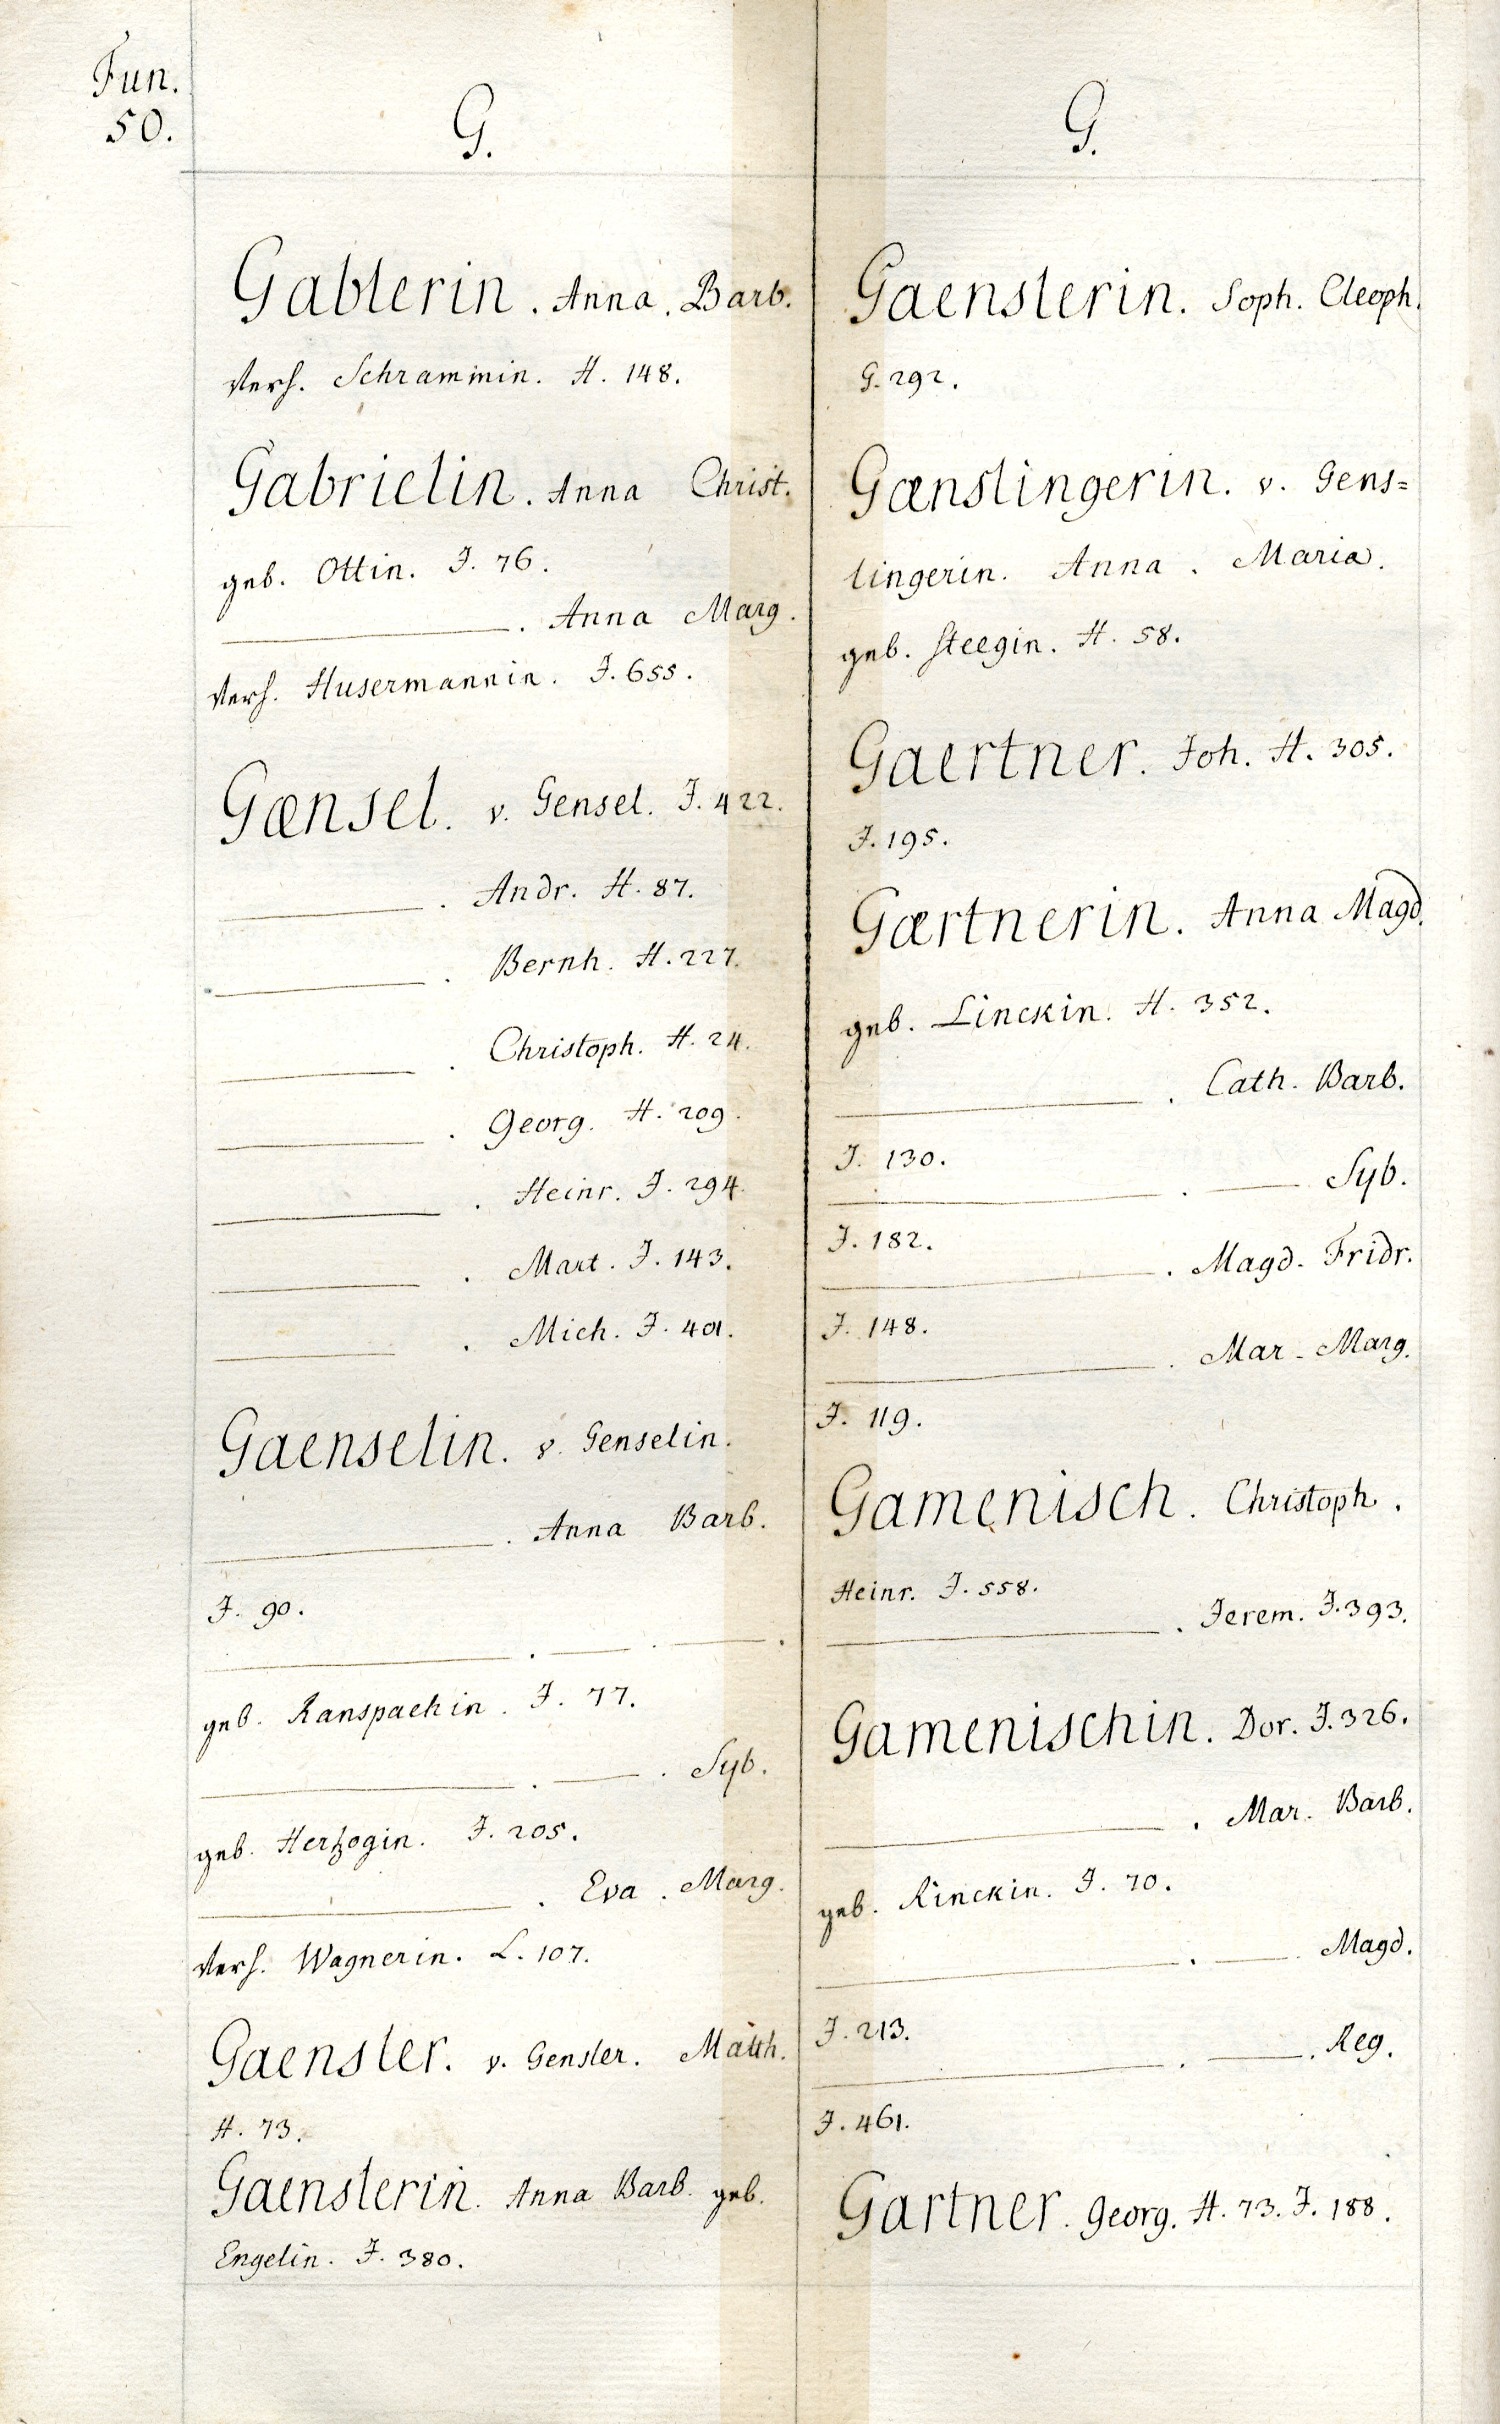 Fun.
50.
G.
Gablerin. Anna. Barb.
verh. Schrammin. H. 148.
Gabrielin. Anna Christ.
geb. Ottin. J. 76.
———. Anna Marg.
verh. Husermannin. J. 655.
Gænsel. v. Gensel. J. 422.
———. Andr. H. 87.
———. Bernh. H. 227.
———. Christoph. H. 24.
———. Georg. H. 209.
———. Heinr. J. 294.
———. Mart. J. 143.
———. Mich. J. 401.
Gaenselin. v. Genselin.
———. Anna Barb.
J. 90.
———. ———. ———.
geb. Ranspachin. J. 77.
———. ———. Syb.
geb. Hertzogin. J. 205.
———. Eva. Marg.
verh. Wagnerin. L. 107.
Gaensler. v. Gensler. Matth.
H. 73.
Gaenslerin. Anna Barb. geb.
Engelin. J. 380.
G.
Gaenslerin. Soph. Cleoph.
G. 292.
Gænslingerin. v. Gens=
lingerin. Anna. Maria.
geb. Steegin. H. 58.
Gaertner. Joh. H. 305.
J. 195.
Gærtnerin. Anna Magd.
geb. Linckin. H. 352.
———. Cath. Barb.
J. 130.
———. ——— Syb.
J. 182.
———. Magd. Fridr.
J. 148.
———. Mar. Marg.
J. 119.
Gamenisch. Christoph.
Heinr. J. 558.
———. Jerem. J. 393.
Gamenischin. Dor. J. 326.
———. Mar. Barb.
geb. Rinckin. J. 70.
———. ———. Magd.
J. 213.
———. ———. Reg.
J. 461.
Gartner. Georg. H. 73. J. 188.